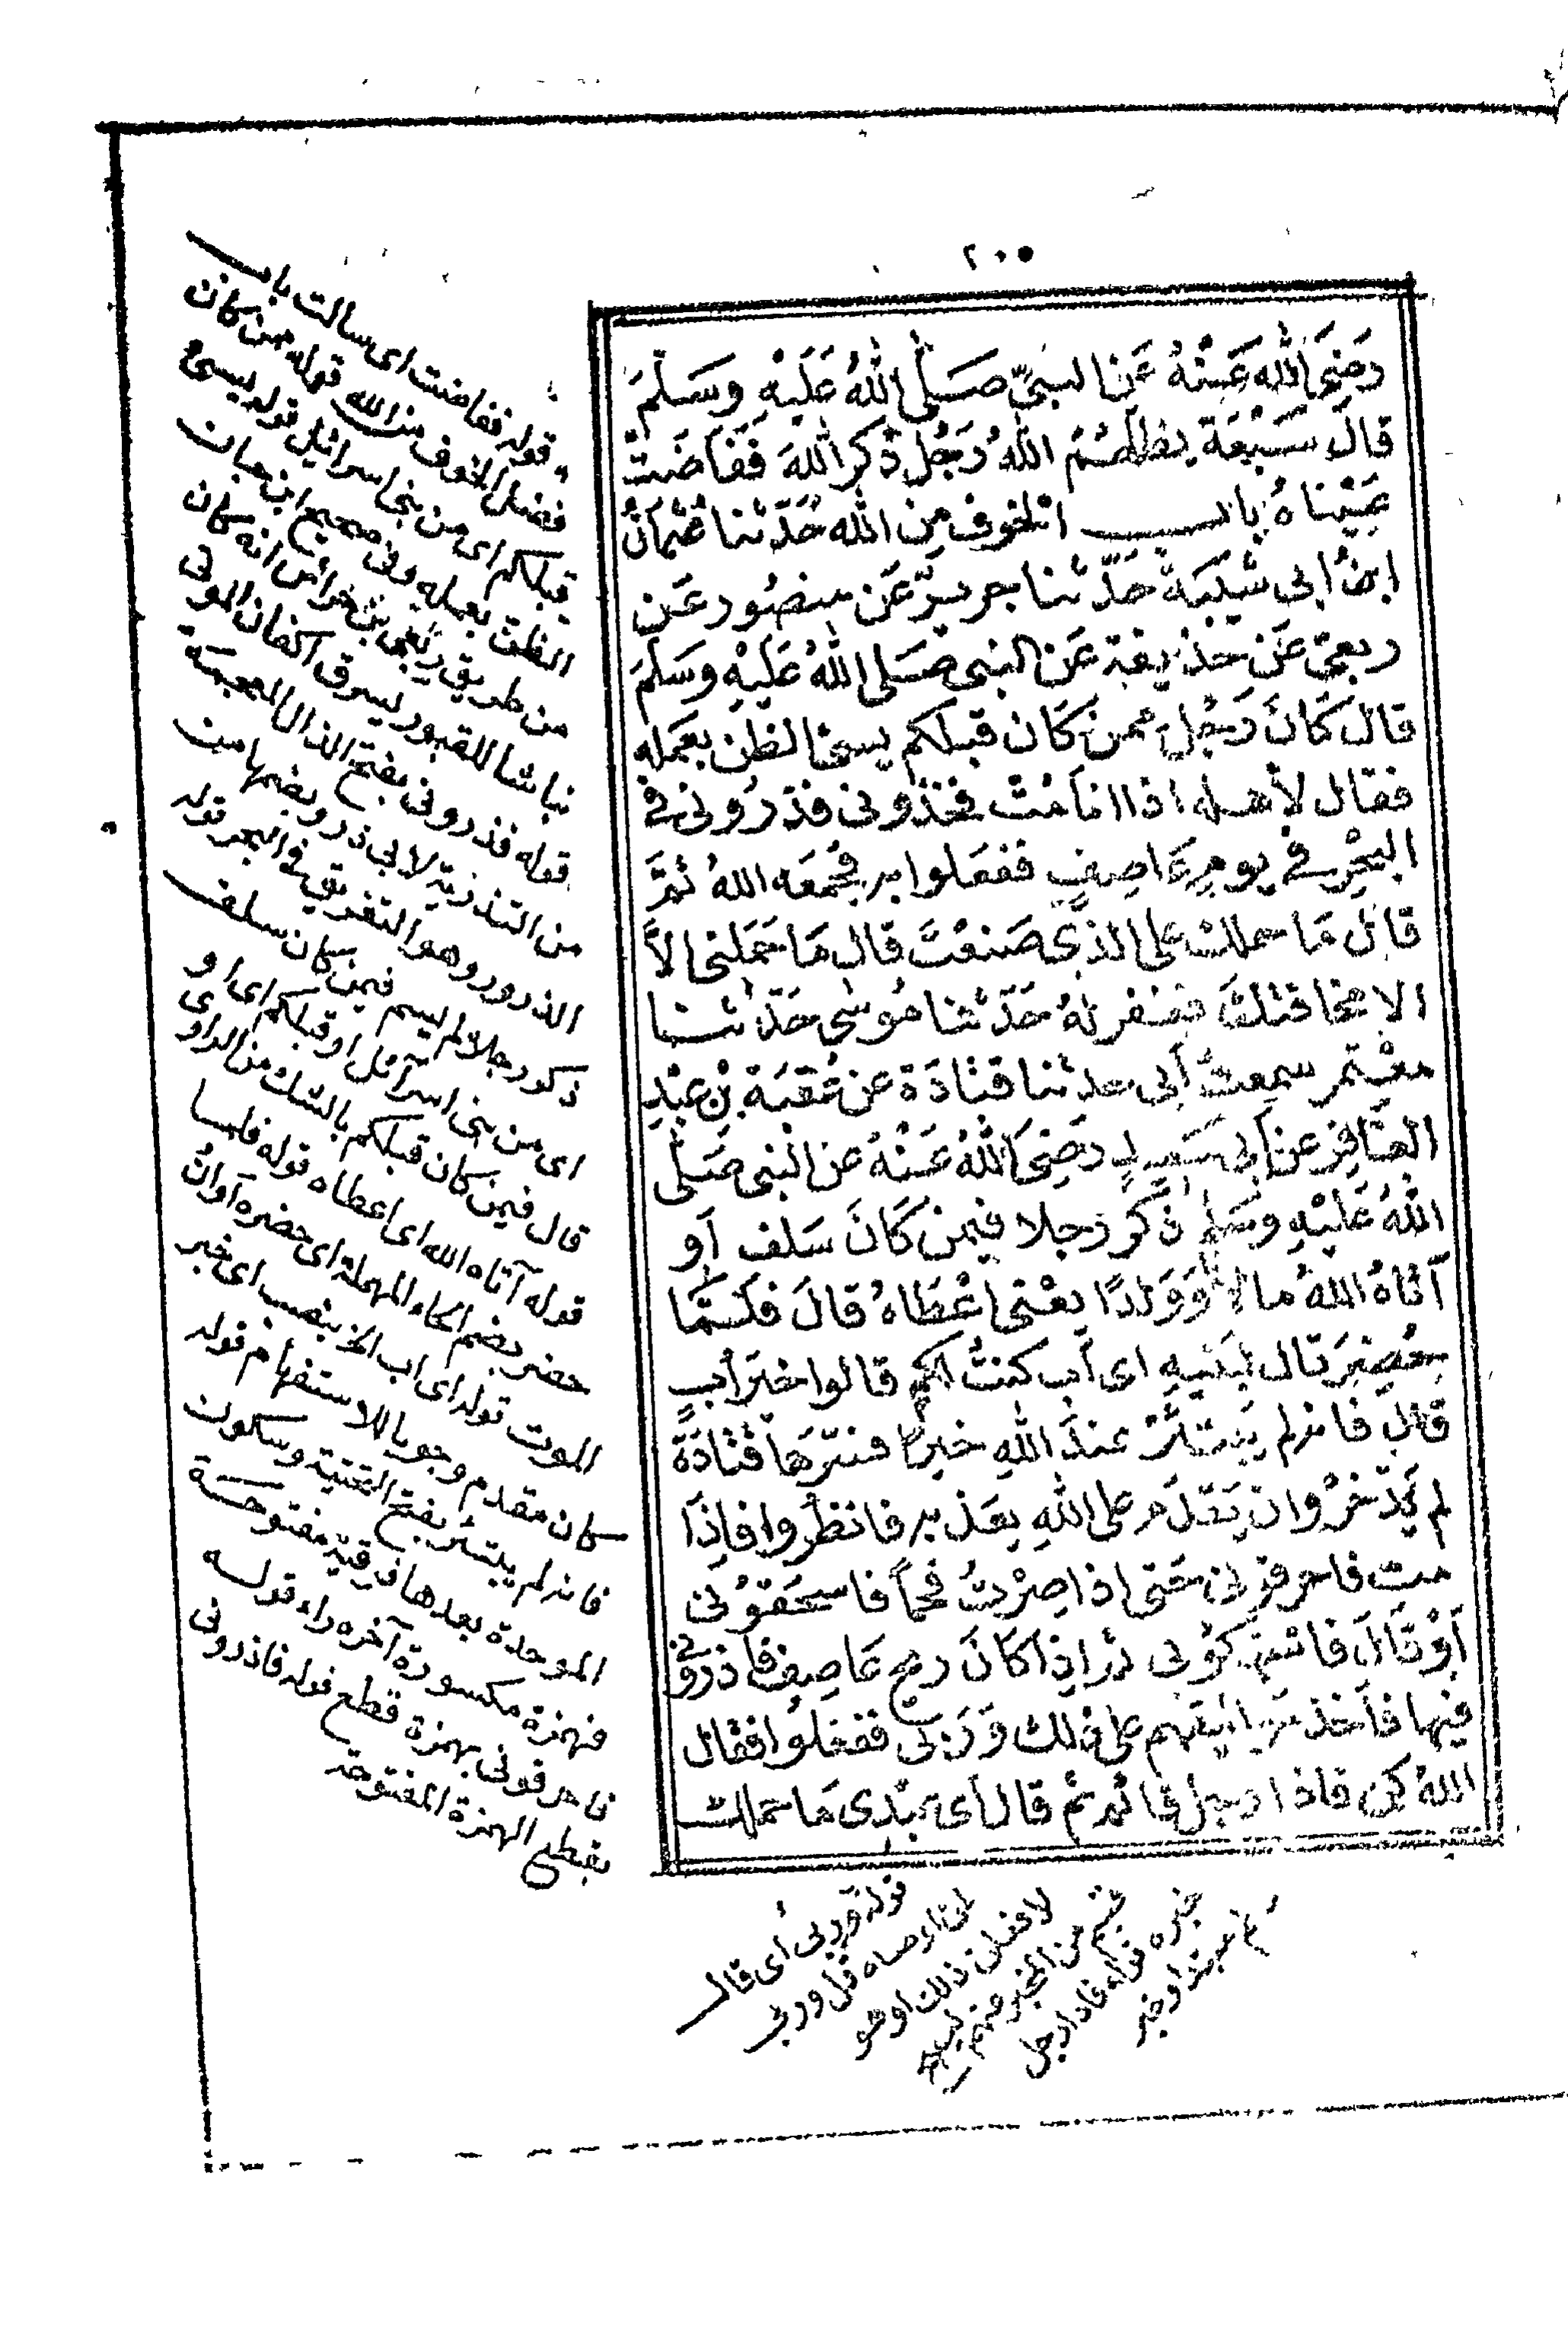 ٢٠٠
رَضِيَ اللّٰهُ عَنْهُ عَنِ النبيِّ صَلَّى اللّٰهُ عَلَيْهِ وَسَلَّمَ
قَالَ سَبْعَة يظلهُمُ اللّٰهُ رَجُل ذَكَرَ اللّٰهَ فَفَاضَتْ
عَيْنَاهُ باب الخوف مِنَ اللّٰه حَدّثنا عُثْمَانُ
ابنُ ابى شَيْبَةَ حَدّثنا جرير عَن منصُور عَن
ربعىّ عَن حُذيفة عَن النبى صَلى اللّٰهُ عَلَيْهِ وَسَلَّمَ
قال كَانَ رَجُل ممن كَانَ قبلكم يسئ الظن بعَمله
فقال لأهله اذا انا مُتّ فخذُونى فذرُونى فى
البَحْر فى يومٍ عَاصِفٍ ففعَلوا به فَجمَعَه اللّٰهُ ثمَّ
قال مَا حملك على الذى صَنعْتَ قال مَا حَمَلنى الاَّ
الا مخافتك فغفر لهُ حَدّثنا مُوسٰى حَدّثنا
معْتمر سمعتُ أبى حدثنا قتادَة عن عُقبَة بْن عبْدِ
الغَافِر عن أبى سَعِيدٍ رَضِىَ اللّٰهُ عَنْهُ عن النبى صَلَّى
اللّٰهُ عَلَيْهِ وَسَلم ذكر رجلا فيمن كَانَ سَلف اَو
آتاهُ اللّٰهُ مالاً وَوَلدًا يعْنى اعْطَاهُ قالَ فلَمَّا
حُضِرَ قال لبَنيهِ اى اَب كنتُ لكم قالوا خيرَ أبٍ
قال فانه لم يَبْتئرْ عندَ اللّٰهِ خيراً فسّرَهَا قتادَة
لم يَدّخرْ وان يَقدَم على اللّٰهِ يعَذبه فانظرُوا فاِذَا
مت فاحرقونى حَتى اذا صِرْتُ فحْماً فاسحَقوُنى
اَوْ قَالَ فاسْهَكوُنى ثم اذِا كَانَ ريح عَاصِف فاذرُونى
فيها فأخذ مَواثيقهم على ذلك وَرَبى ففعَلوُا فقال
اللّٰهُ كن فاذا رجل قائم ثم قال اى عَبْدى مَا حملك
قوله ففاضت اى سالت باب
فضل الخوف من الله قوله ممن كان
قبلكم اى من بنى اسرائيل قوله يسئ
الظن بعمله وفى صحيح ابن حبان
من طريق ربعى بن حراش انه كان
نباشا للقبور يسرق اكفان الموتى
قوله فذرونى بفتح الذال المعجمة
من التذرية لابى ذر وبضمها من
الذرور وهو التفريق فى البحر قوله
ذكر رجلا لم يسم فيمن كان سلف
اى من بنى اسرآئيل او قبلكم اى او
قال فيمن كان قبلكم بالشك من الراوى
قوله آتاه الله اى اعطاه قوله فلما
حضر بضم الحاء المهملة اى حضره اوان
الموت قوله اى اب الخ بنصب اى خبر
كان مقدم وجوبا للاستفهام قوله
فانه لم يبتئر بفتح التحتية وسكون
الموحدة بعدها فوقية مفتوحة
فهمزة مكسورة آخره راء قوله
فاحرقونى بهمزة قطع قوله فاذرونى
بقطع الهمزة المفتوحة
قوله وربى أى قال
لمن اوصاه قل وربى
لافعلن ذلك او هو
قسم من المخبر
خبره قوله فاذا رجل